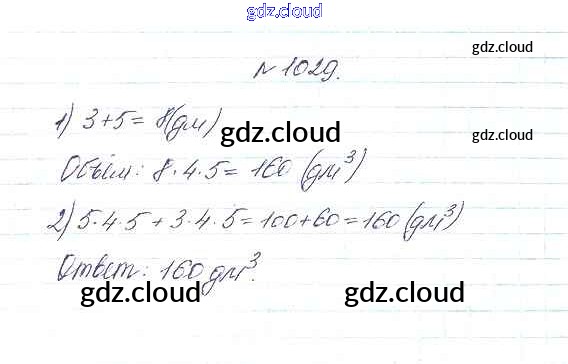 gdz.cloud
gdz.cloud
№ 1029.
1) 3+5= 8(дм)
gdz.cloud
Объём: 8·4·5= 160 (дм³)
2) 5·4·5 + 3·4·5=100+60=160 (дм³)
Ответ: 160 дм³.
gdz.cloud gdz.cloud